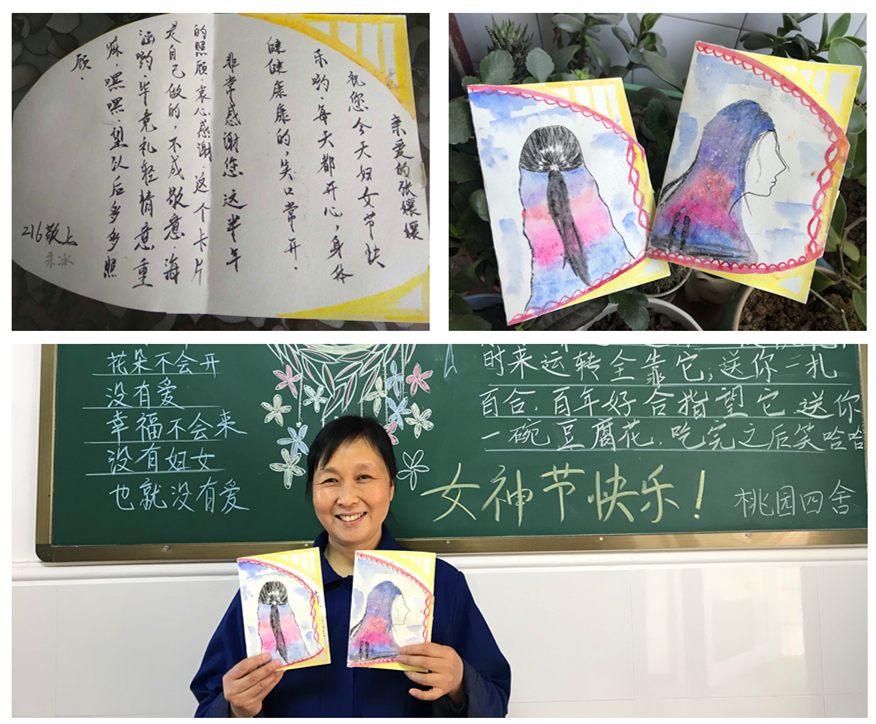 亲爱的张嬢嬢
祝您今天妇女节快
乐哟，每天都开心，身体
健健康康的，笑口常开。
非常感谢您 这半年
的照顾，衷心感谢，这个卡片
是自己做的，不成敬意，海
涵哟，毕竟礼轻情意重
嘛，嘿嘿，望以后多多照
顾。
216敬上
花朵不会开
没有爱
幸福不会来
没有妇女
也就没有爱
时来运转全靠它，送你一札
百合，百年好合指望它，送你
一碗豆腐花，吃完之后笑哈哈
女神节快乐！
桃园四舍